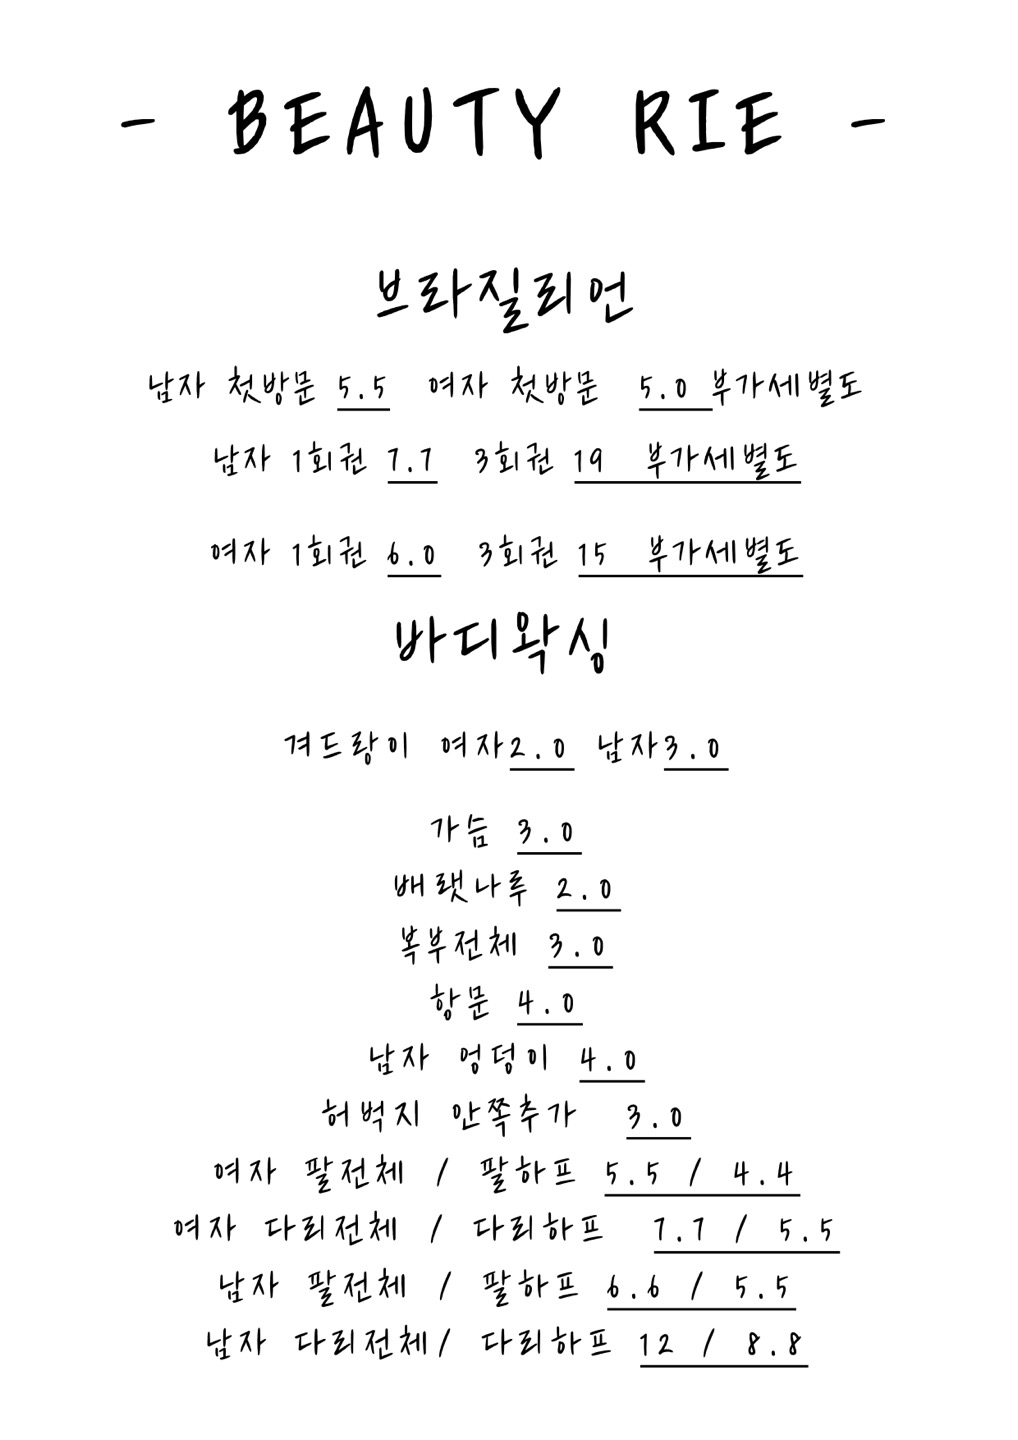 - BEAUTY RIE -
브라질리언
남자 첫방문 5.5 여자 첫방문 5.0 부가세별도
남자 1회권 7.7 3회권 19 부가세별도
여자 1회권 6.0 3회권 15 부가세별도
바디왁싱
겨드랑이 여자2.0 남자3.0
가슴 3.0
배랫나루 2.0
복부전체 3.0
항문 4.0
남자 엉덩이 4.0
허벅지 안쪽추가 3.0
여자 팔전체 / 팔하프 5.5 / 4.4
여자 다리전체 / 다리하프 7.7 / 5.5
남자 팔전체 / 팔하프 6.6 / 5.5
남자 다리전체/ 다리하프 12 / 8.8